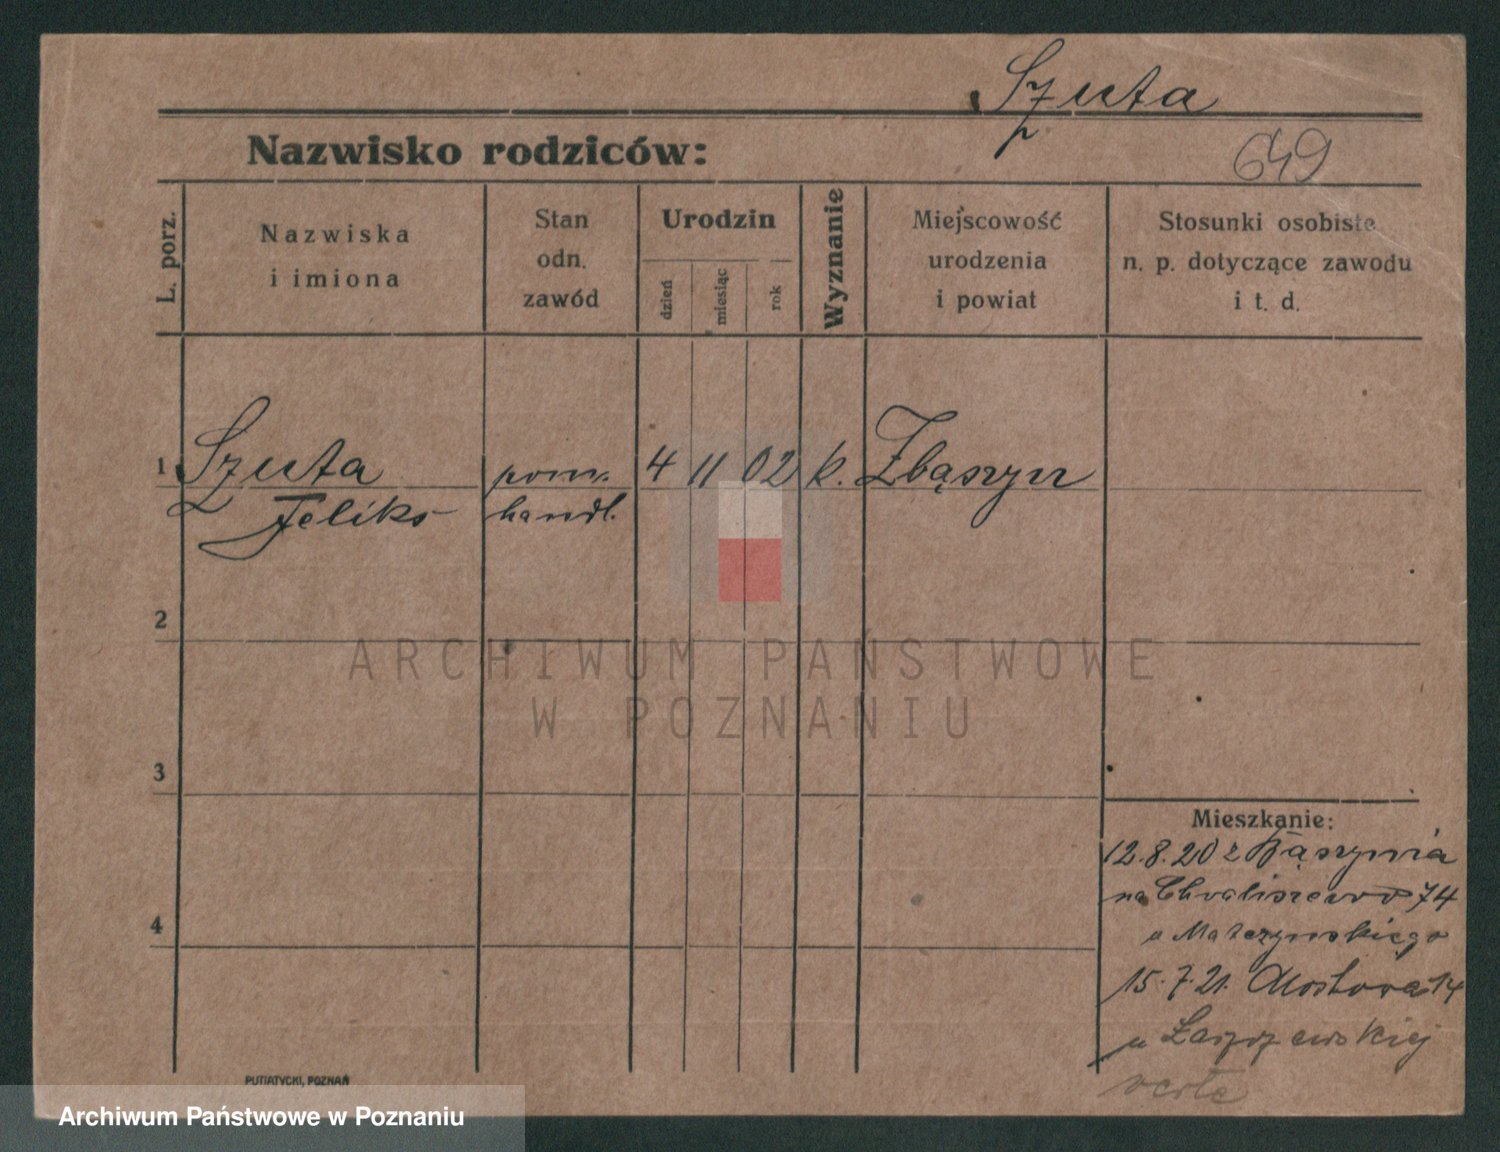 Szuta
Nazwisko rodziców:
649
L. porz.
Nazwiska
i imiona
Stan
odn.
zawód
Urodzin
dzień
miesiąc
rok
Wyznanie
Miejscowość
urodzenia
i powiat
Stosunki osobiste
n. p. dotyczące zawodu
i t. d.
1 Szuta pom. 4 11 02 k. Zbąszyn
Feliks handl.
2
3
4
Mieszkanie:
12.8.20 z
na Chwaliszewo 74
u
15.7.21. Mostowa 14
u
verte
PUTIATYCKI, POZNAŃ
ARCHIWUM PAŃSTWOWE
W POZNANIU
Archiwum Państwowe w Poznaniu